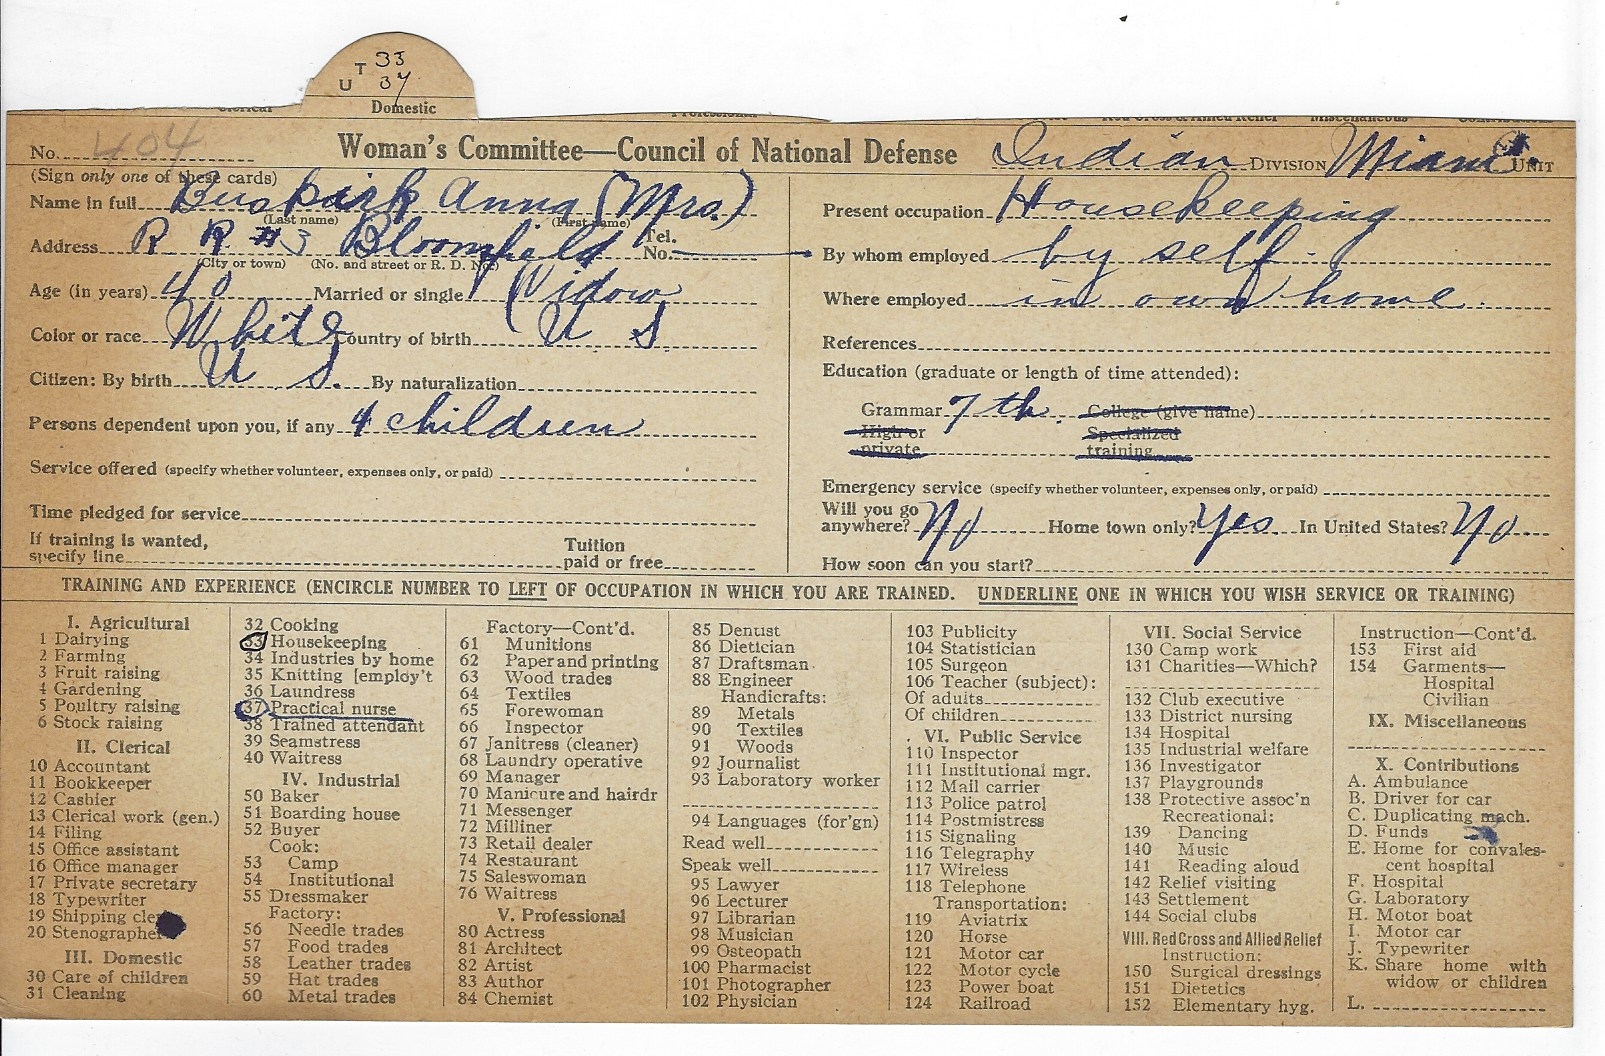 T 33
U 37
Domestic
No. 404
Woman's Committee—Council of National Defense
Indian DIVISION Miami UNIT
(Sign only one of these cards)
Name in full Buskirk Anna (Mrs.)
(Last name) (First name)
Address R R #3 Bloomfield Tel. No.
(City or town) (No. and street or R. D. No.)
Age (in years) 40 Married or single Widow
Color or race White Country of birth U S.
Citizen: By birth U S. By naturalization
Persons dependent upon you, if any 4 children
Service offered (specify whether volunteer, expenses only, or paid)
Time pledged for service
If training is wanted,
specify line Tuition paid or free
Present occupation Housekeeping
By whom employed by self.
Where employed in own home.
References
Education (graduate or length of time attended):
Grammar 7th. College (give name)
High or private Specialized training
Emergency service (specify whether volunteer, expenses only, or paid)
Will you go anywhere? No Home town only? Yes In United States? No
How soon can you start?
TRAINING AND EXPERIENCE (ENCIRCLE NUMBER TO LEFT OF OCCUPATION IN WHICH YOU ARE TRAINED. UNDERLINE ONE IN WHICH YOU WISH SERVICE OR TRAINING)
I. Agricultural
1 Dairying
2 Farming
3 Fruit raising
4 Gardening
5 Poultry raising
6 Stock raising
II. Clerical
10 Accountant
11 Bookkeeper
12 Cashier
13 Clerical work (gen.)
14 Filing
15 Office assistant
16 Office manager
17 Private secretary
18 Typewriter
19 Shipping cle
20 Stenographe
III. Domestic
30 Care of children
31 Cleaning
32 Cooking
33 Housekeeping
34 Industries by home
35 Knitting [employ't
36 Laundress
37 Practical nurse
38 Trained attendant
39 Seamstress
40 Waitress
IV. Industrial
50 Baker
51 Boarding house
52 Buyer
Cook:
53 Camp
54 Institutional
55 Dressmaker
Factory:
56 Needle trades
57 Food trades
58 Leather trades
59 Hat trades
60 Metal trades
Factory—Cont'd.
61 Munitions
62 Paper and printing
63 Wood trades
64 Textiles
65 Forewoman
66 Inspector
67 Janitress (cleaner)
68 Laundry operative
69 Manager
70 Manicure and hairdr
71 Messenger
72 Milliner
73 Retail dealer
74 Restaurant
75 Saleswoman
76 Waitress
V. Professional
80 Actress
81 Architect
82 Artist
83 Author
84 Chemist
85 Dentist
86 Dietician
87 Draftsman
88 Engineer
Handicrafts:
89 Metals
90 Textiles
91 Woods
92 Journalist
93 Laboratory worker
94 Languages (for'gn)
Read well
Speak well
95 Lawyer
96 Lecturer
97 Librarian
98 Musician
99 Osteopath
100 Pharmacist
101 Photographer
102 Physician
103 Publicity
104 Statistician
105 Surgeon
106 Teacher (subject):
Of adults
Of children
VI. Public Service
110 Inspector
111 Institutional mgr.
112 Mail carrier
113 Police patrol
114 Postmistress
115 Signaling
116 Telegraphy
117 Wireless
118 Telephone
Transportation:
119 Aviatrix
120 Horse
121 Motor car
122 Motor cycle
123 Power boat
124 Railroad
VII. Social Service
130 Camp work
131 Charities—Which?
132 Club executive
133 District nursing
134 Hospital
135 Industrial welfare
136 Investigator
137 Playgrounds
138 Protective assoc'n
Recreational:
139 Dancing
140 Music
141 Reading aloud
142 Relief visiting
143 Settlement
144 Social clubs
VIII. Red Cross and Allied Relief
Instruction:
150 Surgical dressings
151 Dietetics
152 Elementary hyg.
Instruction—Cont'd.
153 First aid
154 Garments—
Hospital
Civilian
IX. Miscellaneous
X. Contributions
A. Ambulance
B. Driver for car
C. Duplicating mach.
D. Funds
E. Home for convales-
cent hospital
F. Hospital
G. Laboratory
H. Motor boat
I. Motor car
J. Typewriter
K. Share home with
widow or children
L.